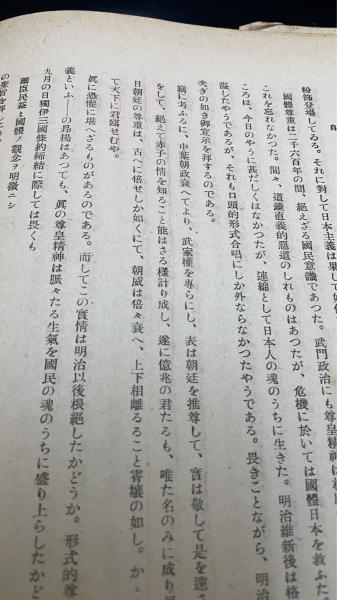 自
粉飾登場してゐる。それに對して日本主義は果して如何
國體尊重は二千六百年の間、絕えざる國民意識であつた。武門政治にも尊皇精神は
これを忘れなかつた。間々、道鏡直義的惡道のしれものはあつたが、危機に於いては國體日本を救ふた。
ころは、今日のやうに甚だしくはなかつたが、連綿として日本人の魂のうちに生きた。明治維新後は格
溢したやうであるが、それも口頭的形式合唱にしか外ならなかつたやうである。畏きことながら、明治
次ぎの如き御宣示を拜するのである。
竊に考ふるに、中葉朝政衰へてより、武家權を專らにし、表は朝廷を推尊して、實は敬して是を遠ざ
をして、絕えて赤子の情を知ること能はざる樣計り成し、遂に億兆の君たるも、唯た名のみに成り
日朝廷の尊重は、古へに倍せしか如くにて、朝威は倍々衰へ、上下相離るること霄壤の如し。かゝ
て天下に君臨せむや。
眞に恐懼に堪へざるものがあるのである。而してこの實情は明治以後根絕したかどうか。形式的尊
義といふ――の昂揚はあつても、眞の尊皇精神は脈々たる生氣を國民の魂のうちに盛り上らしたかど
九月の日獨伊三國條約締結に際しては畏くも
爾臣民益々國體ノ觀念ヲ明徵ニシ
の聖旨を拜し